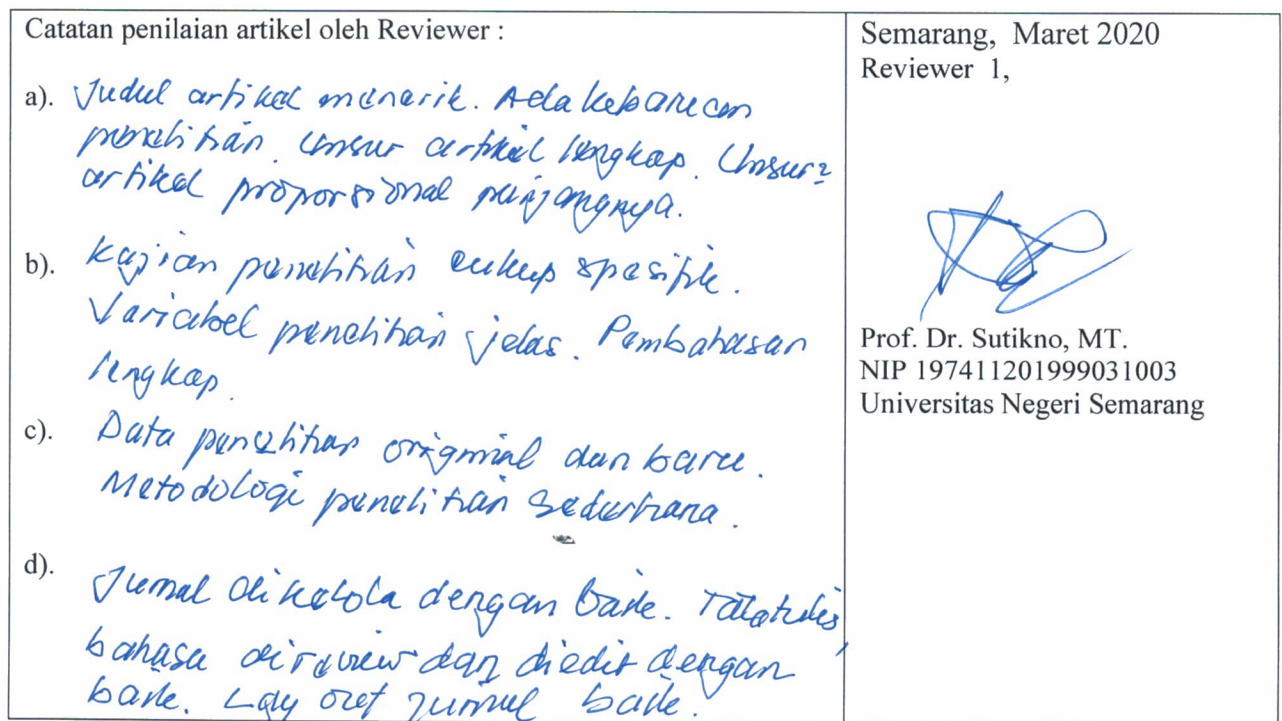 Catatan penilaian artikel oleh Reviewer :
a). Judul artikel menarik. Ada kebaruan
penelitian. Unsur artikel lengkap. Unsur2
artikel proporsional panjangnya.
b). Kajian penelitian cukup spesifik.
Variabel penelitian jelas. Pembahasan
lengkap.
c). Data penelitian original dan baru.
Metodologi penelitian sederhana.
d). Jurnal dikelola dengan baik. Tatatulis,
bahasa direview dan diedit dengan
baik. Lay out jurnal baik.
Semarang, Maret 2020
Reviewer 1,
Prof. Dr. Sutikno, MT.
NIP 197411201999031003
Universitas Negeri Semarang